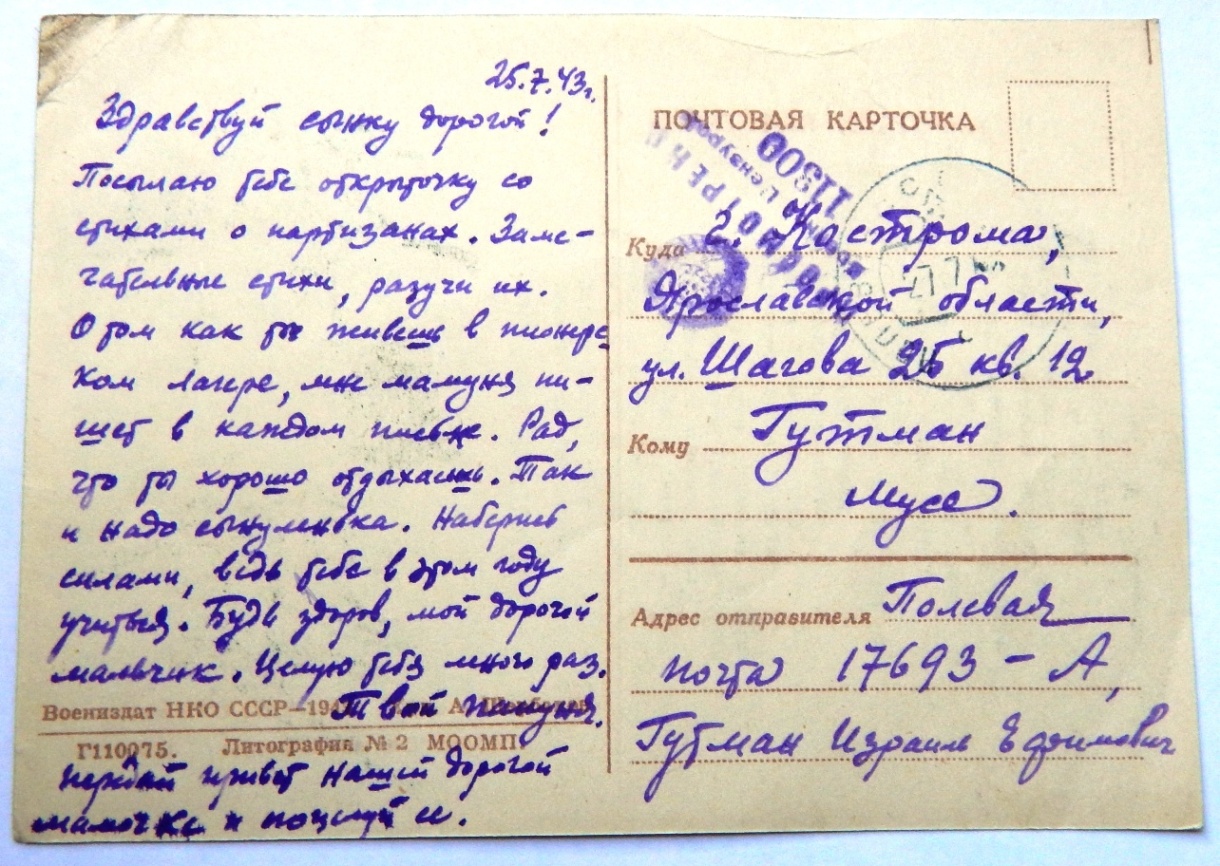 25.7.43г.
Здравствуй сынку дорогой!
Посылаю тебе открыточку со
стихами о партизанах. Заме-
чательные стихи, разучи их.
О том как ты живешь в пионерс
ком лагере, мне мамуня пи-
шет в каждом письме. Рад,
что ты хорошо отдыхаешь. Так
и надо сынуленька. Наберись
силами, ведь тебе в этом году
учиться. Будь здоров, мой дорогой
мальчик. Целую тебя много раз.
Твой папуня.
Воениздат НКО СССР—194
Г110075. Литография № 2 МООМП
Передай привет нашей дорогой
мамочке и поцелуй ее.
ПОЧТОВАЯ КАРТОЧКА
ПРОСМОТРЕНО
Военной Цензурой
11300
Куда г. Кострома,
Ярославской области,
ул. Шагова 25 кв. 12
Кому Гутман
Мусе.
Адрес отправителя Полевая
почта 17693 – А,
Гутман Израиль Ефимович